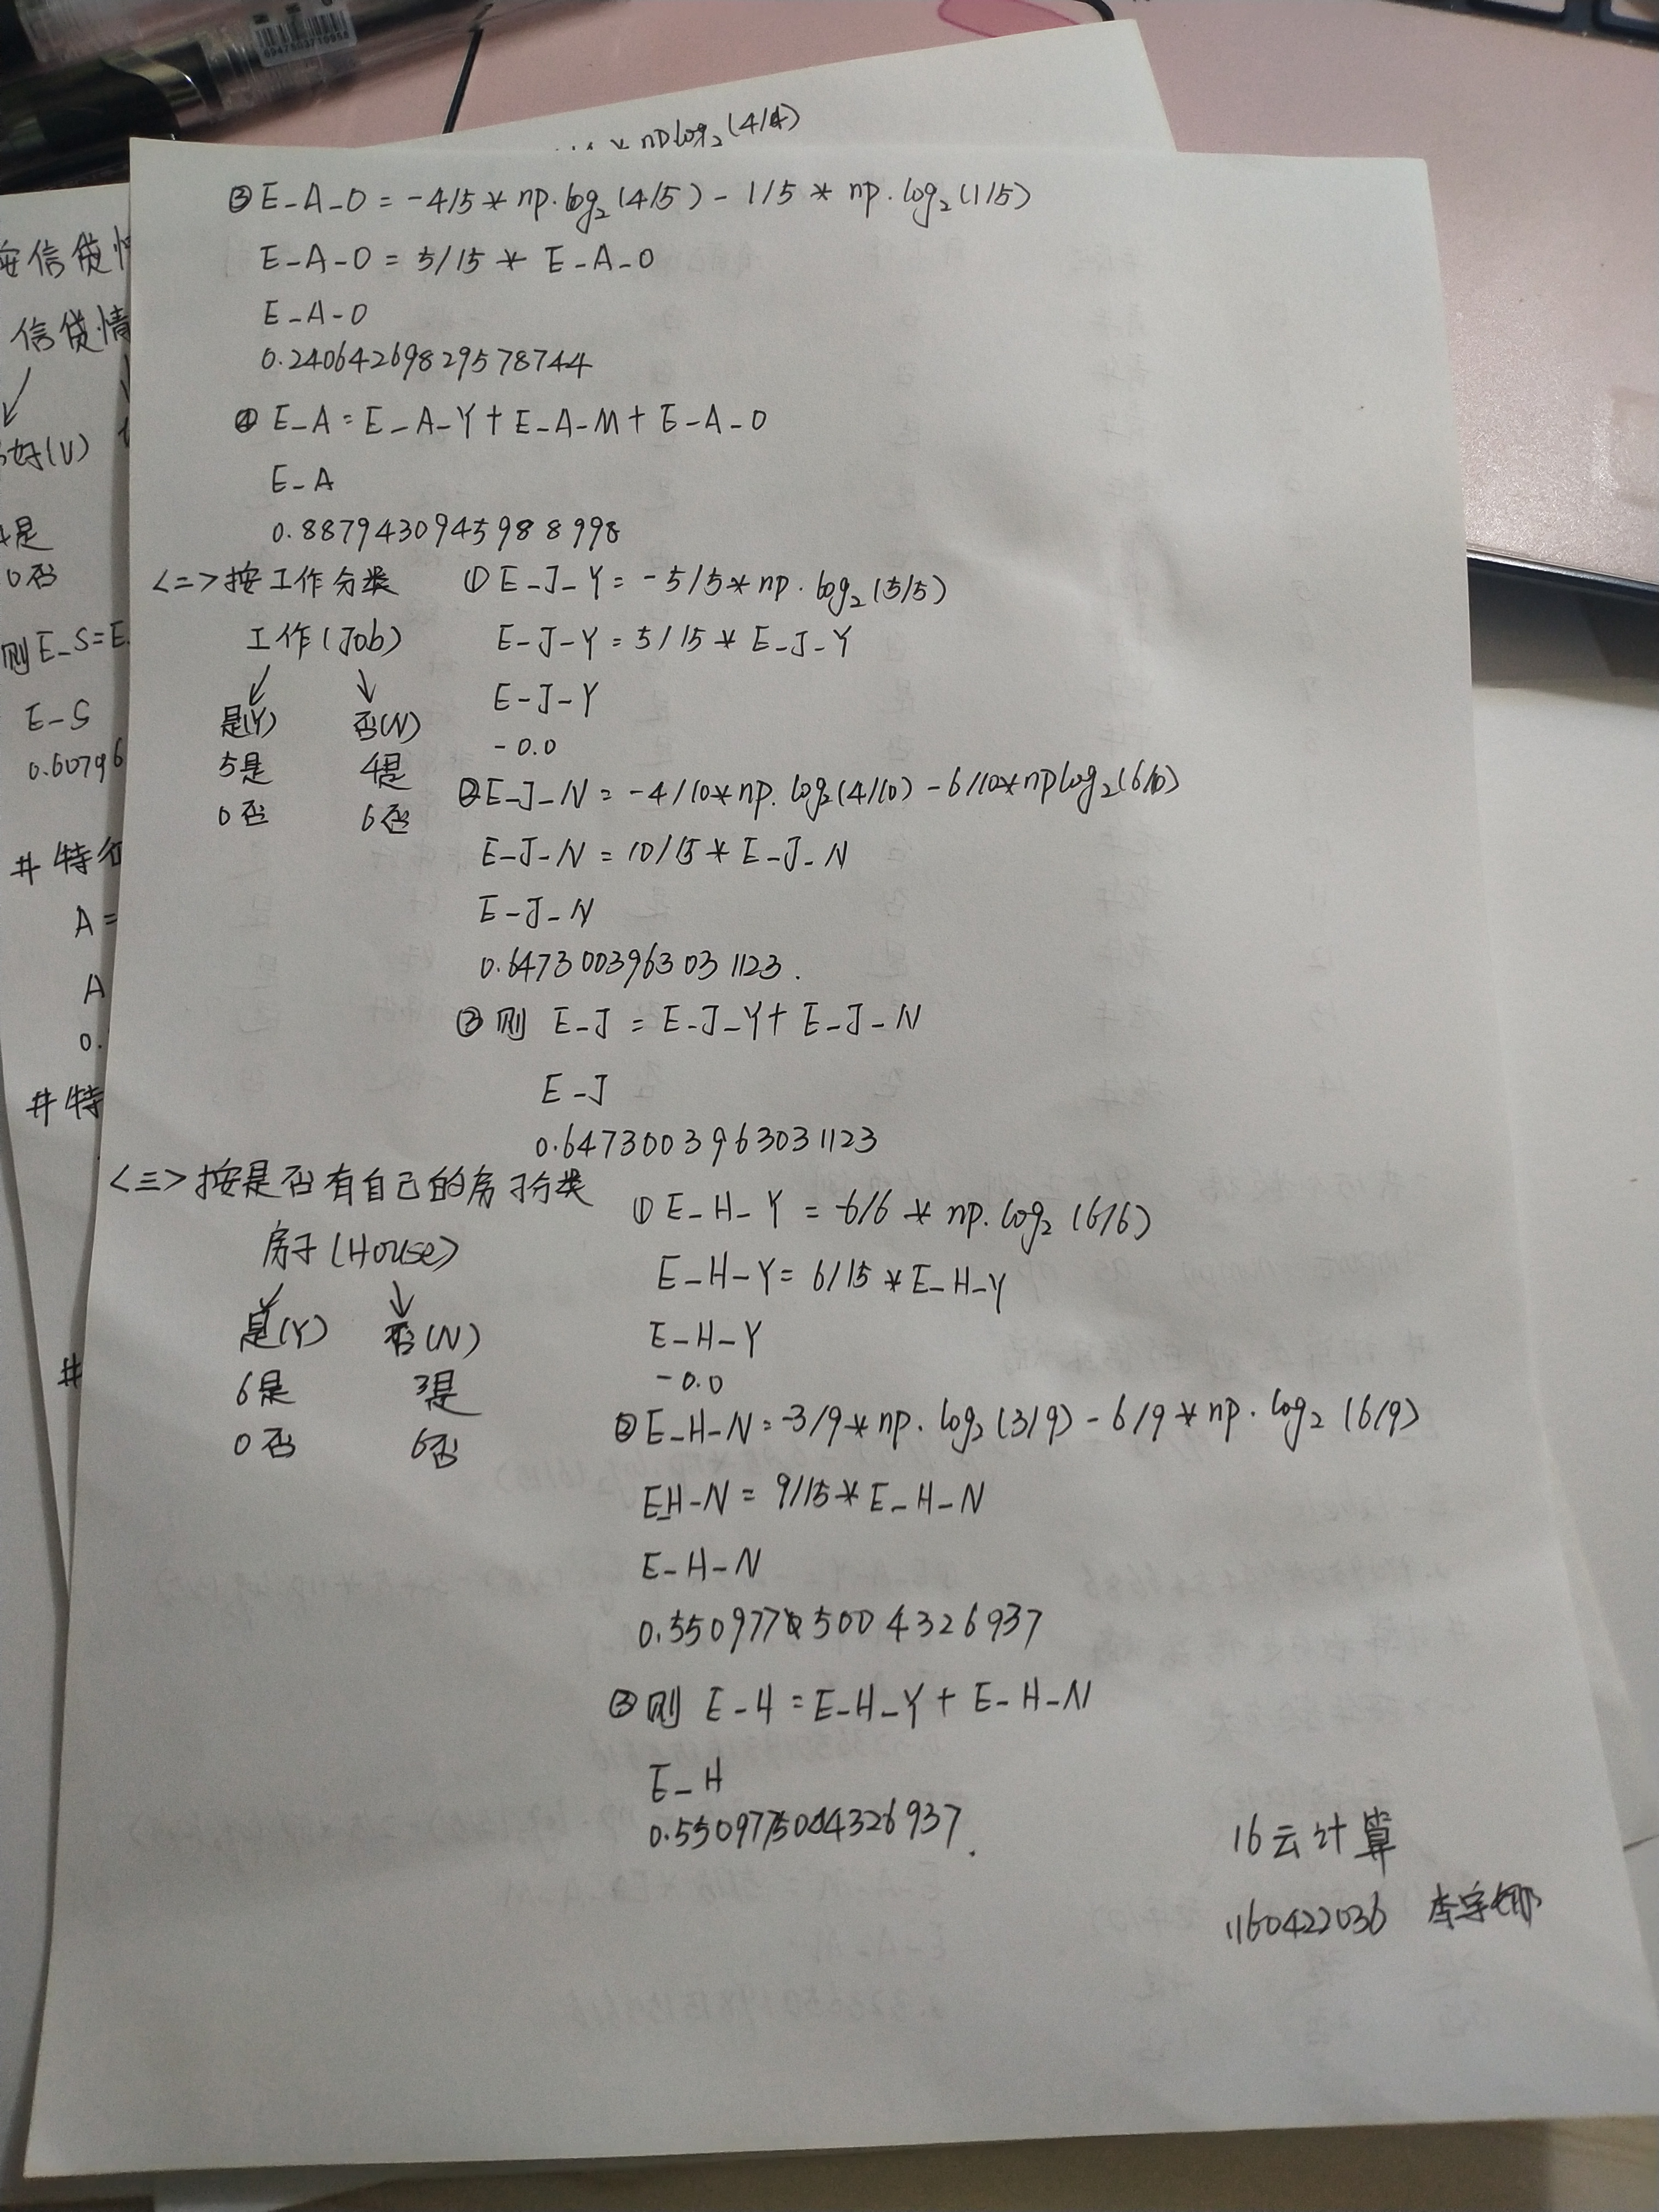 6947503710958
np log₂(4/4)
③ E_A_O = -4/5 * np.log₂(4/5) - 1/5 * np.log₂(1/5)
E_A_O = 5/15 * E_A_O
E_A_O
0.24064269829578744
④ E_A = E_A_Y + E_A_M + E_A_O
E_A
0.8879430945988998
<二>按工作分类
工作(Job)
是(Y) 否(N)
5是 4是
0否 6否
① E_J_Y = -5/5 * np.log₂(5/5)
E_J_Y = 5/15 * E_J_Y
E_J_Y
-0.0
② E_J_N = -4/10 * np.log₂(4/10) - 6/10 * np log₂(6/10)
E_J_N = 10/15 * E_J_N
E_J_N
0.6473003963031123.
③ 则 E_J = E_J_Y + E_J_N
E_J
0.6473003963031123
<三>按是否有自己的房子分类
房子(House)
是(Y) 否(N)
6是 3是
0否 6否
① E_H_Y = -6/6 * np.log₂(6/6)
E_H_Y = 6/15 * E_H_Y
E_H_Y
-0.0
② E_H_N = -3/9 * np.log₂(3/9) - 6/9 * np.log₂(6/9)
E_H_N = 9/15 * E_H_N
E_H_N
③ 则 E_H = E_H_Y + E_H_N
E_H
16云计算
1160422036
按信贷
信贷情
好(V)
是
0否
则E_S=E
E_S
0.60796
#特
A =
A
0.
#特
#